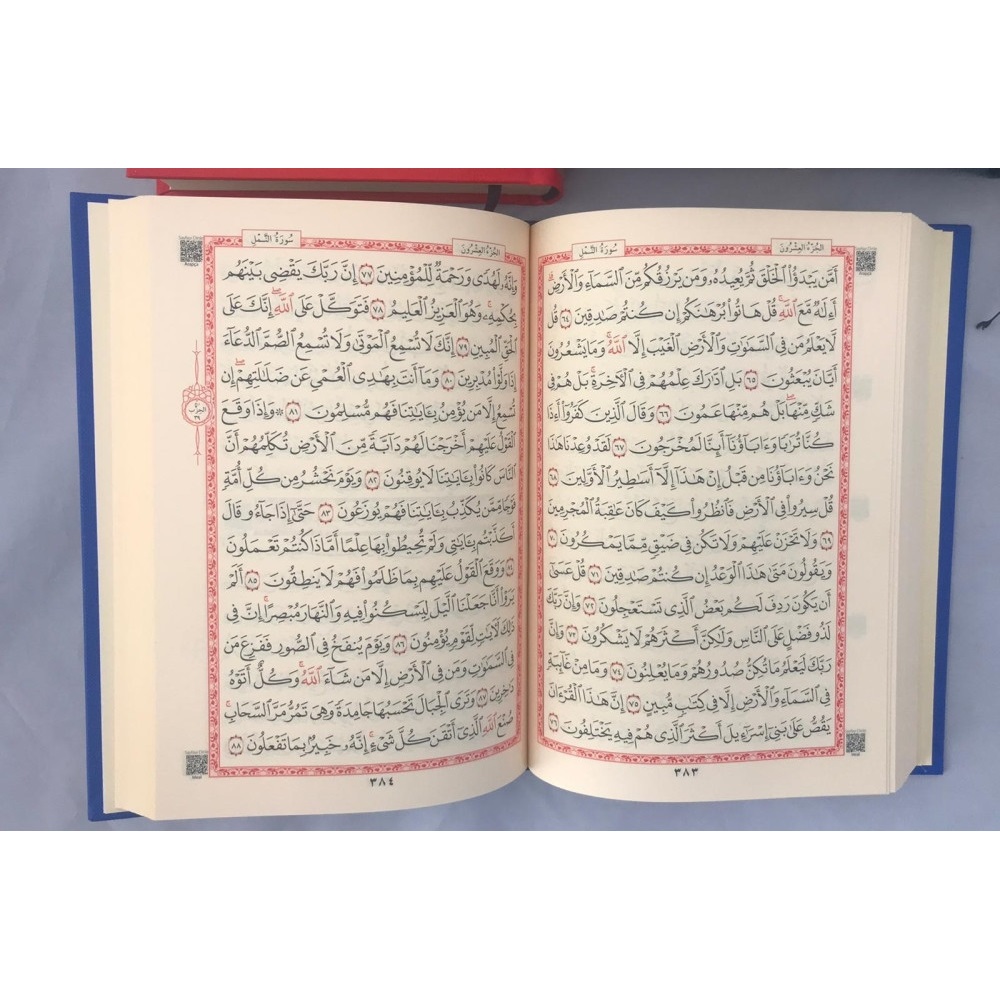 الجُزْءُ العِشْرُونَ
سُورَةُ النَّمْلِ
أَمَّن يَبْدَؤُا۟ ٱلْخَلْقَ ثُمَّ يُعِيدُهُۥ وَمَن يَرْزُقُكُم مِّنَ ٱلسَّمَآءِ وَٱلْأَرْضِ ۗ
أَءِلَٰهٌ مَّعَ ٱللَّهِ ۚ قُلْ هَاتُوا۟ بُرْهَٰنَكُمْ إِن كُنتُمْ صَٰدِقِينَ ٦٤ قُل
لَّا يَعْلَمُ مَن فِى ٱلسَّمَٰوَٰتِ وَٱلْأَرْضِ ٱلْغَيْبَ إِلَّا ٱللَّهُ ۚ وَمَا يَشْعُرُونَ
أَيَّانَ يُبْعَثُونَ ٦٥ بَلِ ٱدَّٰرَكَ عِلْمُهُمْ فِى ٱلْءَاخِرَةِ ۚ بَلْ هُمْ فِى
شَكٍّ مِّنْهَا ۖ بَلْ هُم مِّنْهَا عَمُونَ ٦٦ وَقَالَ ٱلَّذِينَ كَفَرُوٓا۟ أَءِذَا
كُنَّا تُرَٰبًا وَءَابَآؤُنَآ أَئِنَّا لَمُخْرَجُونَ ٦٧ لَقَدْ وُعِدْنَا هَٰذَا
نَحْنُ وَءَابَآؤُنَا مِن قَبْلُ إِنْ هَٰذَآ إِلَّآ أَسَٰطِيرُ ٱلْأَوَّلِينَ ٦٨
قُلْ سِيرُوا۟ فِى ٱلْأَرْضِ فَٱنظُرُوا۟ كَيْفَ كَانَ عَٰقِبَةُ ٱلْمُجْرِمِينَ
٦٩ وَلَا تَحْزَنْ عَلَيْهِمْ وَلَا تَكُن فِى ضَيْقٍ مِّمَّا يَمْكُرُونَ ٧٠
وَيَقُولُونَ مَتَىٰ هَٰذَا ٱلْوَعْدُ إِن كُنتُمْ صَٰدِقِينَ ٧١ قُلْ عَسَىٰٓ
أَن يَكُونَ رَدِفَ لَكُم بَعْضُ ٱلَّذِى تَسْتَعْجِلُونَ ٧٢ وَإِنَّ رَبَّكَ
لَذُو فَضْلٍ عَلَى ٱلنَّاسِ وَلَٰكِنَّ أَكْثَرَهُمْ لَا يَشْكُرُونَ ٧٣ وَإِنَّ
رَبَّكَ لَيَعْلَمُ مَا تُكِنُّ صُدُورُهُمْ وَمَا يُعْلِنُونَ ٧٤ وَمَا مِنْ غَآئِبَةٍ
فِى ٱلسَّمَآءِ وَٱلْأَرْضِ إِلَّا فِى كِتَٰبٍ مُّبِينٍ ٧٥ إِنَّ هَٰذَا ٱلْقُرْءَانَ
يَقُصُّ عَلَىٰ بَنِىٓ إِسْرَٰٓءِيلَ أَكْثَرَ ٱلَّذِى هُمْ فِيهِ يَخْتَلِفُونَ ٧٦
٣٨٣
الجُزْءُ العِشْرُونَ
سُورَةُ النَّمْلِ
وَإِنَّهُۥ لَهُدًى وَرَحْمَةٌ لِّلْمُؤْمِنِينَ ٧٧ إِنَّ رَبَّكَ يَقْضِى بَيْنَهُم
بِحُكْمِهِۦ ۚ وَهُوَ ٱلْعَزِيزُ ٱلْعَلِيمُ ٧٨ فَتَوَكَّلْ عَلَى ٱللَّهِ ۖ إِنَّكَ عَلَى
ٱلْحَقِّ ٱلْمُبِينِ ٧٩ إِنَّكَ لَا تُسْمِعُ ٱلْمَوْتَىٰ وَلَا تُسْمِعُ ٱلصُّمَّ ٱلدُّعَآءَ
إِذَا وَلَّوْا۟ مُدْبِرِينَ ٨٠ وَمَآ أَنتَ بِهَٰدِى ٱلْعُمْىِ عَن ضَلَٰلَتِهِمْ ۖ إِن
تُسْمِعُ إِلَّا مَن يُؤْمِنُ بِـَٔايَٰتِنَا فَهُم مُّسْلِمُونَ ٨١ ۞ وَإِذَا وَقَعَ
ٱلْقَوْلُ عَلَيْهِمْ أَخْرَجْنَا لَهُمْ دَآبَّةً مِّنَ ٱلْأَرْضِ تُكَلِّمُهُمْ أَنَّ
ٱلنَّاسَ كَانُوا۟ بِـَٔايَٰتِنَا لَا يُوقِنُونَ ٨٢ وَيَوْمَ نَحْشُرُ مِن كُلِّ أُمَّةٍ
فَوْجًا مِّمَّن يُكَذِّبُ بِـَٔايَٰتِنَا فَهُمْ يُوزَعُونَ ٨٣ حَتَّىٰٓ إِذَا جَآءُو قَالَ
أَكَذَّبْتُم بِـَٔايَٰتِى وَلَمْ تُحِيطُوا۟ بِهَا عِلْمًا أَمَّاذَا كُنتُمْ تَعْمَلُونَ
٨٤ وَوَقَعَ ٱلْقَوْلُ عَلَيْهِم بِمَا ظَلَمُوا۟ فَهُمْ لَا يَنطِقُونَ ٨٥ أَلَمْ
يَرَوْا۟ أَنَّا جَعَلْنَا ٱلَّيْلَ لِيَسْكُنُوا۟ فِيهِ وَٱلنَّهَارَ مُبْصِرًا ۚ إِنَّ فِى
ذَٰلِكَ لَءَايَٰتٍ لِّقَوْمٍ يُؤْمِنُونَ ٨٦ وَيَوْمَ يُنفَخُ فِى ٱلصُّورِ فَفَزِعَ مَن
فِى ٱلسَّمَٰوَٰتِ وَمَن فِى ٱلْأَرْضِ إِلَّا مَن شَآءَ ٱللَّهُ ۚ وَكُلٌّ أَتَوْهُ
دَٰخِرِينَ ٨٧ وَتَرَى ٱلْجِبَالَ تَحْسَبُهَا جَامِدَةً وَهِىَ تَمُرُّ مَرَّ ٱلسَّحَابِ ۚ
صُنْعَ ٱللَّهِ ٱلَّذِىٓ أَتْقَنَ كُلَّ شَىْءٍ ۚ إِنَّهُۥ خَبِيرٌۢ بِمَا تَفْعَلُونَ ٨٨
٣٨٤